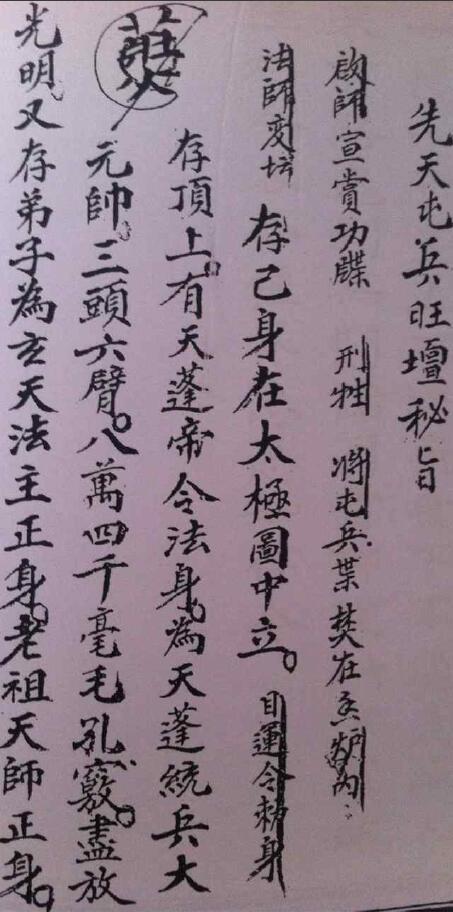 先天屯兵旺壇秘旨
啟師宣賞功牒 刑牲 將屯兵葉焚在香爐內
法師变坛 存己身在太極圖中立。目運令勅身
存頂上。有天蓬帝令法身。為天蓬統兵大
元帥。三頭六臂。八萬四千毫毛孔竅。盡放
光明又存弟子為玄天法主正身。老祖天師正身。